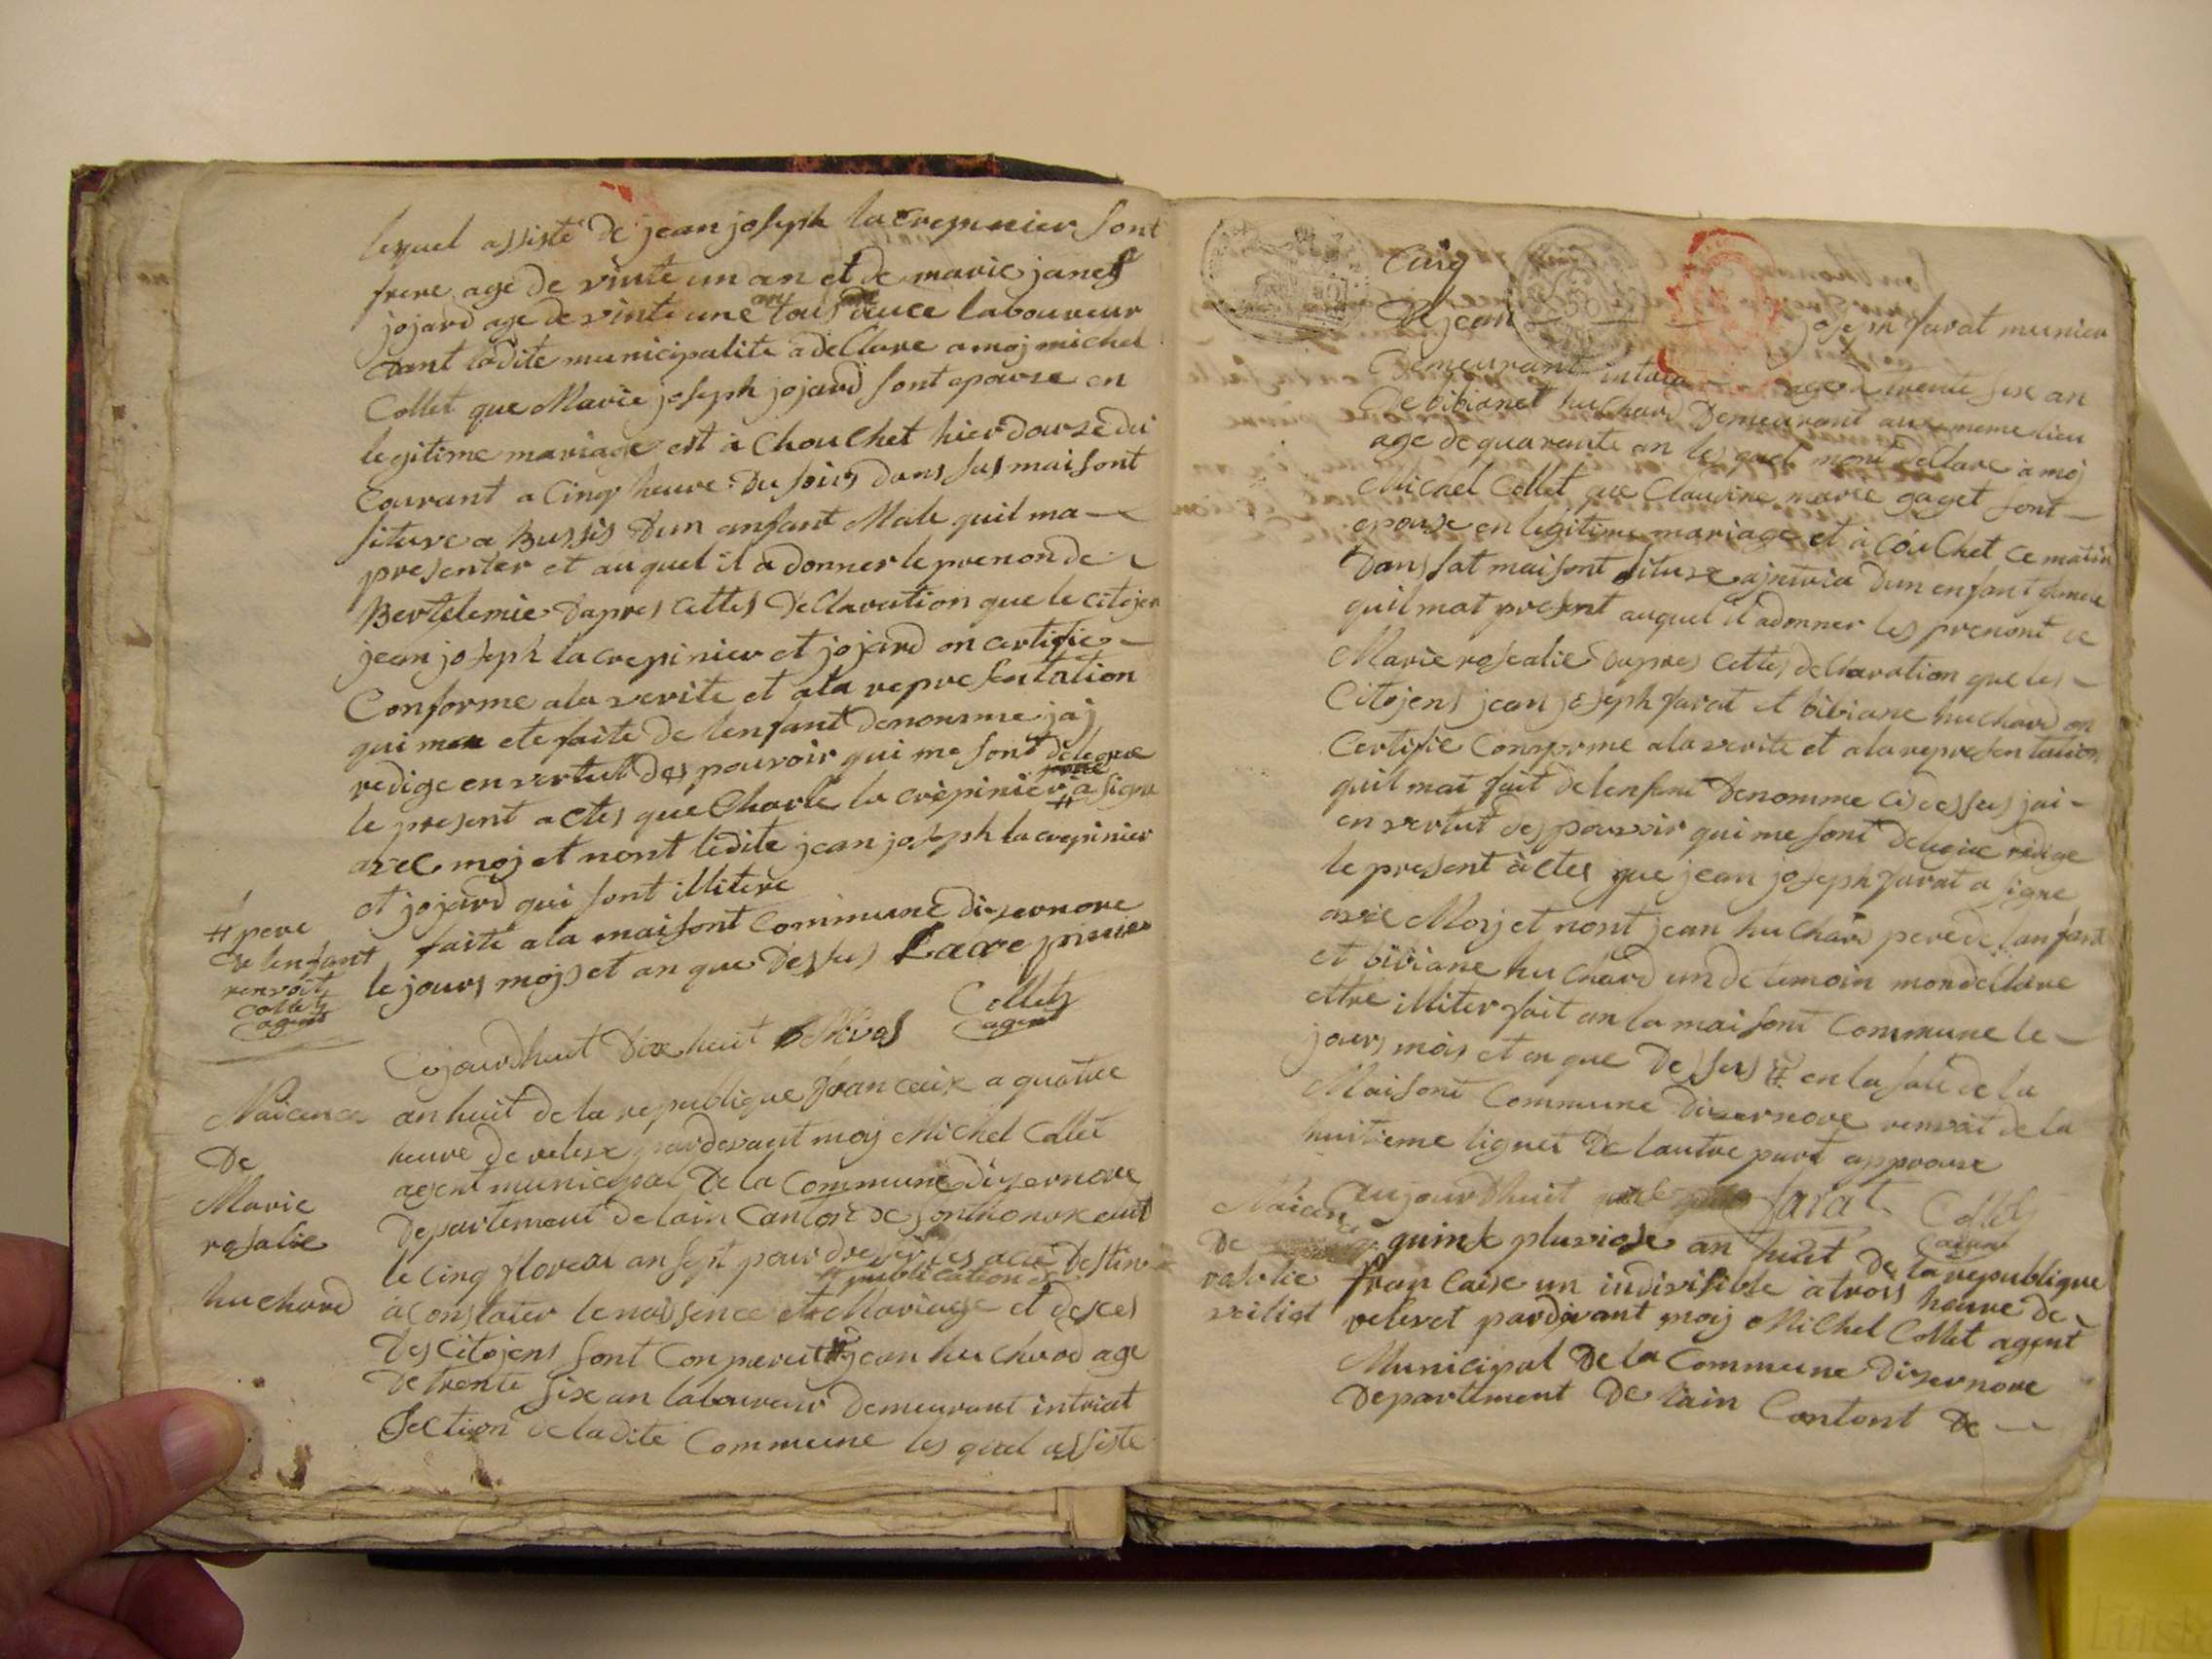 lequel assiste de jean joseph lacrepinier sont
frere age de vinte un an et de marie janes
jojard age de vinte une an tous deuce laboureur
dant ladite municipalite a declare a moj michel
Collet que Marie joseph jojard sont epouse en
legitime mariage est à Chouchet hier douze du
Courant a Cinq heure du soirs dans sus maisont
siture a Bussis dun anfant Male quil ma
presenter et auquel il a donner le prenon de
Bertelemie dapres cettes declaration que le citojen
jean joseph lacrepinier et jojard on certifie
Conforme ala verite et ala representation
qui men ete faite de lenfant denomme jaj
redige en vertut des pouvoir qui me sont delegue
le present actes que Charle la crèpinier # a signe
avec moj et nont ledite jean joseph lacrepinier
et jojard qui sont illitere
faite ala maisont Commune disernore
le jours mojs et an que dessus Lacrepinier
# pere
de lenfant
renvoit
Collet
agent
Collet
agent
Cejourdhuit dixhuit
Naicence
De
Marie
rosalie
huchard
an huit de la republique francaix a quatre
heure de relese pardevant moj Michel Collet
agent municipal De la Commune disernore
Departement de lain Canton de sonthonox
le cinq floreal an sept pour dresser les acte destine
# publication de
a constater le naissence et Mariage et deces
des citojens sont Conparut jean huchard age
De trente six an laboureur demeurant intriat
Section de ladite Commune les quel assiste
Cinq
De jean joseph farat munier
Demeurant intria age de trente six an
De bibianet huchard Demeurant aux meme lieu
age de quarante an les quel mont declare à moj
Michel Collet que Claudine marie gaget sont
epouse en legitime mariage et à Couchet ce matin
Dans sat maisont situse a intria dun enfant femele
quil mat present auquel il adonner les prenont de
Marie rosealie dapres cettes declaration que les
Citojens jean joseph farat et bibiane huchard on
Certifie Conforme ala verite et ala representation
quil mat fait de lenfant denomme cidessus jai
en vertut des pouvoir qui me sont delegue redige
le present àctes que jean joseph farat a signe
avec Moj et nont jean huchard pere de lanfant
et bibiane huchard un de temoin mon declare
ettre illiter fait an la maisont Commune le
jours mois et an que Dessus # en la sale de la
Maisont Commune disernore renvoit de la
huitieme lignes De lautre part approuve
farat
Collet
agent
aujourdhuit
Naicence
De
rosalie
quinse pluviose an huit de la republique
francaise un indivisible à trois heure de
relevet pardevant moj Michel Collet agent
Municipal De la Commune disernore
Departement De lain Contont De